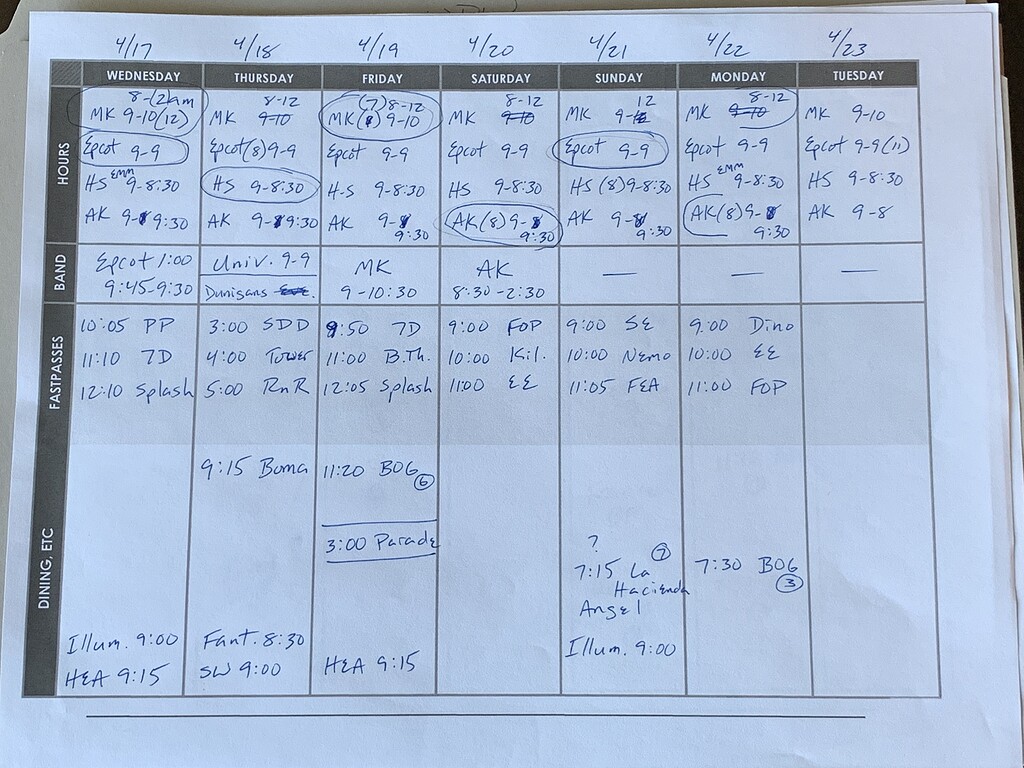 4/17 4/18 4/19 4/20 4/21 4/22 4/23
WEDNESDAY THURSDAY FRIDAY SATURDAY SUNDAY MONDAY TUESDAY
HOURS
8-12am 8-12 (7) 8-12 8-12 12 8-12
MK 9-10(12) MK 9-10 MK (8) 9-10 MK 9-10 MK 9- MK 9-10 MK 9-10
Epcot 9-9 Epcot (8) 9-9 Epcot 9-9 Epcot 9-9 Epcot 9-9 Epcot 9-9 Epcot 9-9 (11)
EMM EMM
HS 9-8:30 HS 9-8:30 H-S 9-8:30 HS 9-8:30 HS (8) 9-8:30 HS 9-8:30 HS 9-8:30
AK 9-8 9:30 AK 9-8 9:30 AK 9-8 AK (8) 9-8 AK 9-8 AK (8) 9-8 AK 9-8
9:30 9:30 9:30 9:30
BAND
Epcot 1:00 Univ. 9-9 MK AK — — —
9:45-9:30 Dunigans Eve. 9-10:30 8:30-2:30
FASTPASSES
10:05 PP 3:00 SDD 9:50 7D 9:00 FOP 9:00 SE 9:00 Dino
11:10 7D 4:00 Tower 11:00 B.Th. 10:00 Kil. 10:00 Nemo 10:00 EE
12:10 Splash 5:00 RnR 12:05 Splash 11:00 EE 11:05 FEA 11:00 FOP
DINING, ETC
9:15 Boma 11:20 BOG
6
3:00 Parade
?
7:15 La 7 7:30 BOG
Hacienda 3
Angel
Illum. 9:00 Fant. 8:30 Illum. 9:00
HEA 9:15 SW 9:00 HEA 9:15